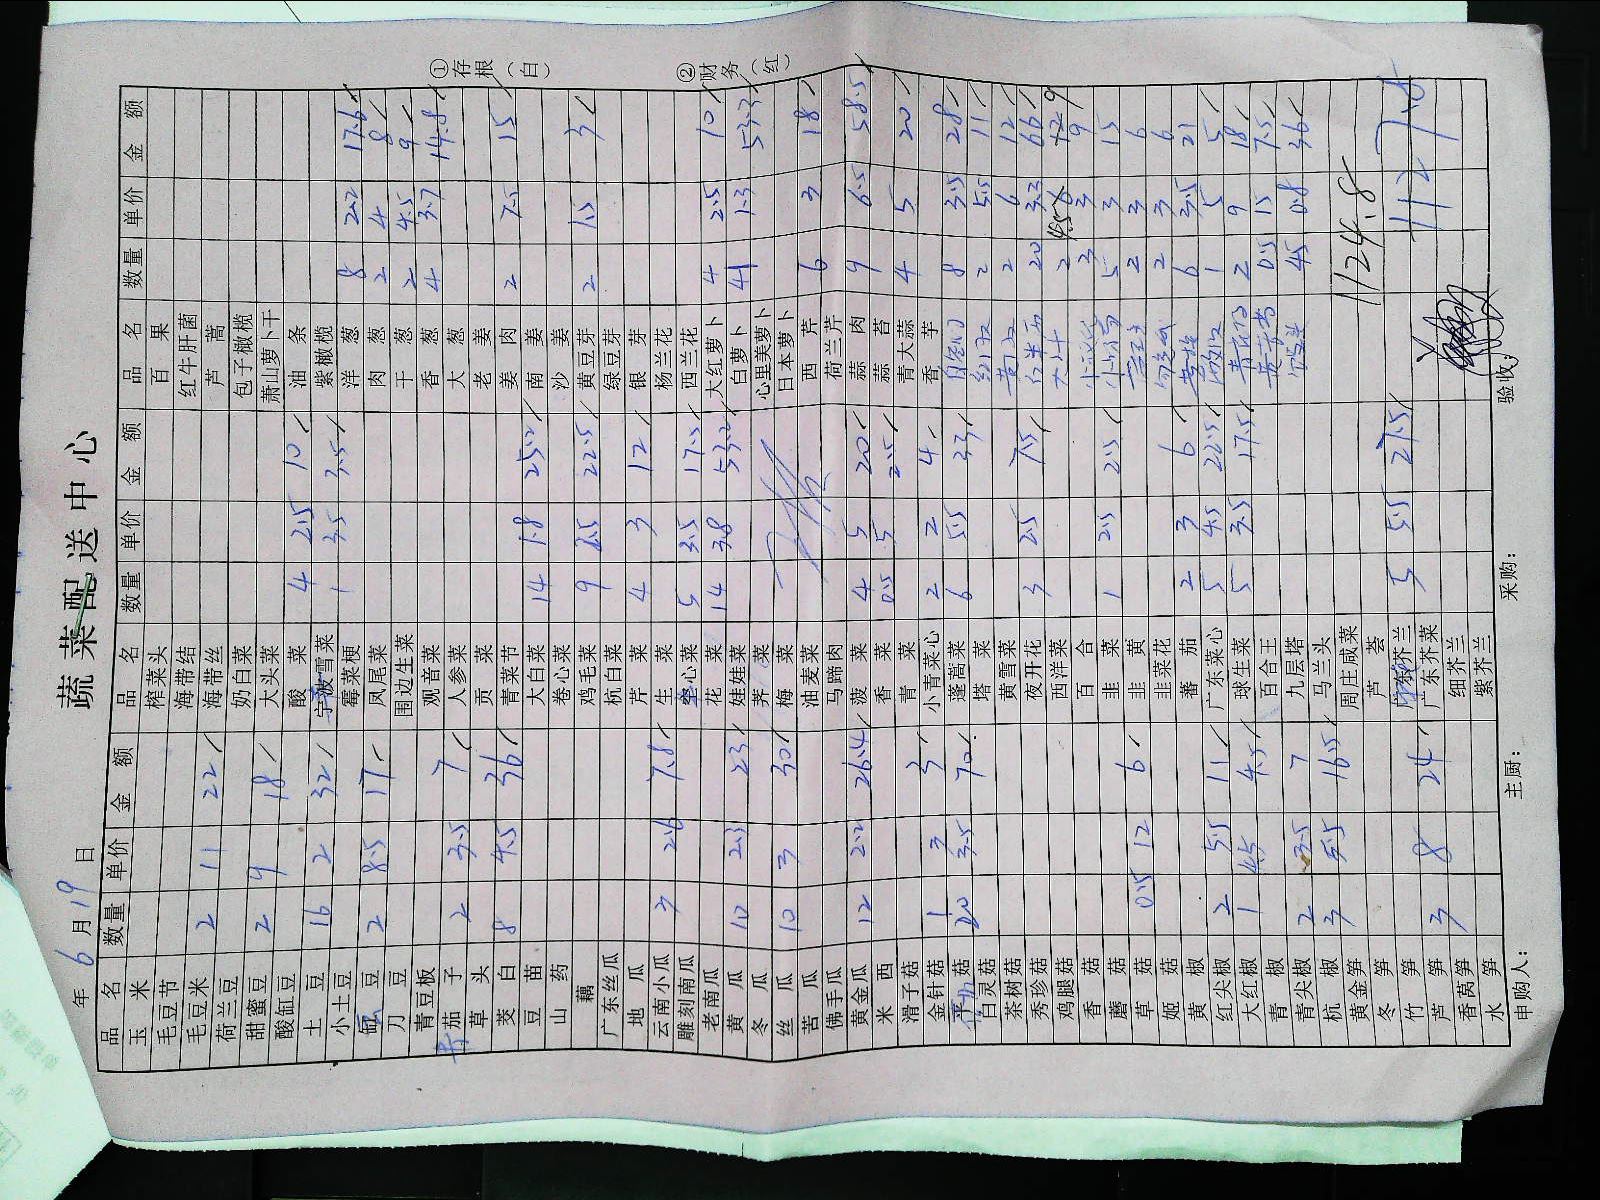 蔬菜配送中心
年 6 月 19 日
品名 数量 单价 金额 品名 数量 单价 金额 品名 数量 单价 金额
玉米 榨菜头 百果
毛豆节 海带结 红牛肝菌
毛豆米 2 11 22 海带丝 芦蒿
荷兰豆 奶白菜 包子橄榄
甜蜜豆 2 9 18 大头菜 萧山萝卜干
酸缸豆 酸菜 4 2.5 10 油条
土豆 16 2 32 宁波雪菜 1 3.5 3.5 紫橄榄
小土豆 霉菜梗 洋葱 8 2.2 17.6
缸豆 2 8.5 17 凤尾菜 肉葱 2 4 8
刀豆 围边生菜 干葱 2 4.5 9
青豆板 观音菜 香葱 4 3.7 14.8
青茄子 2 3.5 7 人参菜 大葱
草头 贡菜 老姜
茭白 8 4.5 36 青菜节 姜肉 2 7.5 15
豆苗 大白菜 14 1.8 25.2 南姜
山药 卷心菜 沙姜
藕 鸡毛菜 9 2.5 22.5 黄豆芽 2 1.5 3
广东丝瓜 杭白菜 绿豆芽
地瓜 芹菜 4 3 12 银芽
云南小瓜 3 2.6 7.8 生菜 杨兰花
雕刻南瓜 空心菜 5 3.5 17.5 西兰花
老南瓜 花菜 14 3.8 53.2 大红萝卜 4 2.5 10
黄瓜 10 2.3 23 娃娃菜 白萝卜 41 1.3 53.3
冬瓜 荠菜 心里美萝卜
丝瓜 10 3 30 梅菜 日本萝卜
苦瓜 油麦菜 西芹 6 3 18
佛手瓜 马蹄肉 荷兰芹
黄金瓜 12 2.2 26.4 菠菜 4 5 20 蒜肉 9 6.5 58.5
米西 香菜 0.5 5 2.5 蒜苔
滑子菇 青菜 青大蒜 4 5 20
金针菇 1 3 3 小青菜心 2 2 4 香芋
平菇 20 3.5 70 蓬蒿菜 6 5.5 33 8 3.5 28
白灵菇 塔菜 2 5.5 11
茶树菇 黄雪菜 2 6 12
秀珍菇 夜开花 3 2.5 7.5 20 3.3 66
鸡腿菇 西洋菜 2 4.5 9
香菇 百合 3 3 9
蘑菇 韭菜 1 2.5 2.5 5 3 15
草菇 0.5 12 6 韭黄 2 3 6
姬菇 韭菜花 2 3 6
黄椒 番茄 2 3 6 6 3.5 21
红尖椒 2 5.5 11 广东菜心 5 4.5 22.5 1 5 5
大红椒 1 4.5 4.5 球生菜 5 3.5 17.5 2 9 18
青椒 百合王 0.5 15 7.5
青尖椒 2 3.5 7 九层塔 45 0.8 36
杭椒 3 5.5 16.5 马兰头
黄金笋 周庄咸菜 1124.8
冬笋 芦荟
竹笋 广东芥兰 5 5.5 27.5 1127.8
芦笋 3 8 24 广东芥菜
香莴笋 细芥兰
水笋 紫芥兰
申购人： 主厨： 采购： 验收：
①存根（白）
②财务（红）